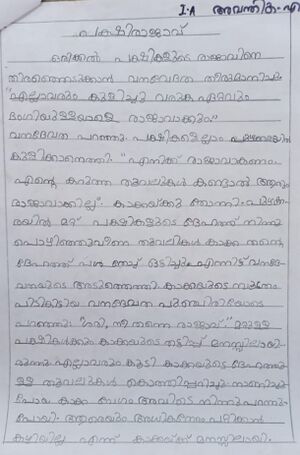 I-A അവന്തിക-എ
പക്ഷിരാജാവ്
ഒരിക്കൽ പക്ഷികളുടെ രാജാവിനെ
തിരഞ്ഞെടുക്കാൻ വനദേവത തീരുമാനിച്ചു.
"എല്ലാവരും കുളിച്ചു വരുക ഏറ്റവും
ഭംഗിയുള്ളയാളെ രാജാവാക്കും"
വനദേവത പറഞ്ഞു. പക്ഷികളെല്ലാം പുഴക്കരയിൽ
കുളിക്കാനെത്തി "എനിക്ക് രാജാവാകണം
എന്റെ കറുത്ത തൂവലുകൾ കണ്ടാൽ ആരും
രാജാവാക്കില്ല". കാക്കയ്ക്കു തോന്നി. പുഴക്ക-
രയിൽ മറ്റ് പക്ഷികളുടെ ദേഹത്ത് നിന്നും
പൊഴിഞ്ഞുവീണ തൂവലുകൾ കാക്ക തന്റെ
ദേഹത്ത് പശ തേച്ച് ഒട്ടിച്ചു. എന്നിട്ട് വനദേ-
വതയുടെ അടുത്തെത്തി. കാക്കയുടെ സൂത്രം
പിടികിട്ടിയ വനദേവത പുഞ്ചിരിയോടെ
പറഞ്ഞു: "ശരി, നീ തന്നെ രാജാവ്." മറ്റുള്ള
പക്ഷികൾക്കും കാക്കയുടെ തട്ടിപ്പ് മനസ്സിലായി.
എല്ലാവരും കൂടി കാക്കയുടെ ദേഹത്തു
ള്ള തൂവലുകൾ കൊത്തിപ്പറിച്ചു. നാണിച്ചു
പോയ കാക്ക വേഗം അവിടെ നിന്നു പറന്നു
പോയി. ആരെയും അധികനേരം പറ്റിക്കാൻ
കഴിയില്ല എന്ന് കാക്കയ്ക്ക് മനസ്സിലായി.